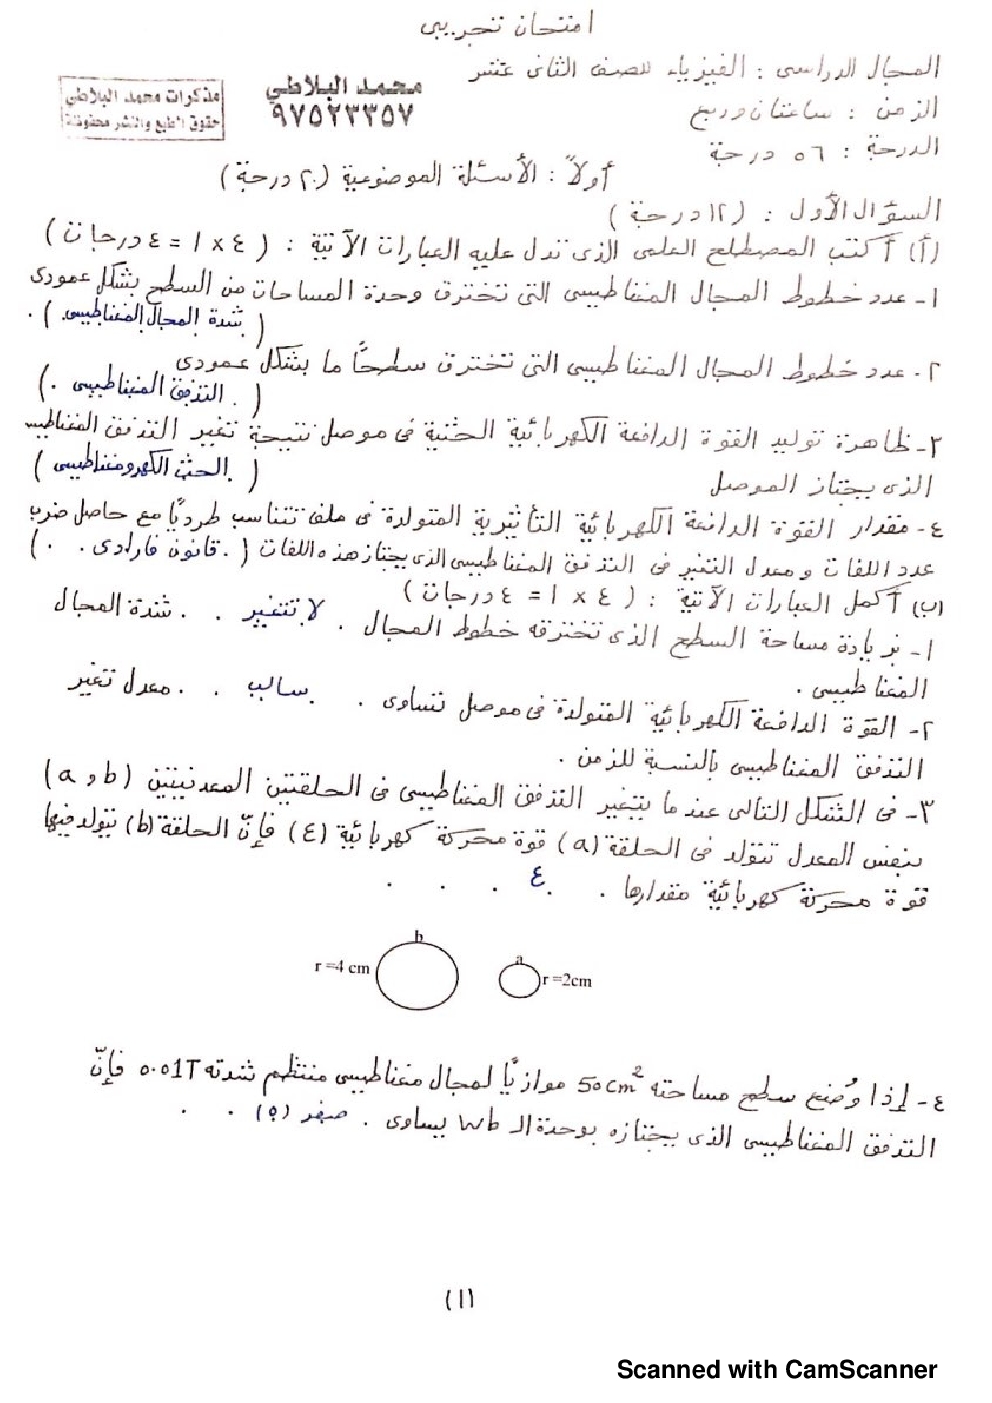 امتحان تجريبى
المجال الدراسى : الفيزياء للصف الثانى عشر
الزمن : ساعتان وربع
الدرجة : ٥٦ درجة
محمد البلاطي
٩٧٥٢٣٣٥٧
مذكرات محمد البلاطي
حقوق الطبع والنشر محفوظة
أولاً : الأسئلة الموضوعية (٢٠ درجة)
السؤال الأول : (١٢ درجة)
(أ) أكتب المصطلح العلمى الذى تدل عليه العبارات الآتية : (٤ × ١ = ٤ درجات)
١- عدد خطوط المجال المغناطيسى التى تخترق وحدة المساحات من السطح بشكل عمودى
( شدة المجال المغناطيسى ) .
٢- عدد خطوط المجال المغناطيسى التى تخترق سطحًا ما بشكل عمودى
( . التدفق المغناطيسى . )
٣- ظاهرة توليد القوة الدافعة الكهربائية الحثية فى موصل نتيجة تغير التدفق المغناطيسى
الذى يجتاز الموصل
( الحث الكهرومغناطيسى )
٤- مقدار القوة الدافعة الكهربائية التأثيرية المتولدة فى ملف تتناسب طرديًا مع حاصل ضرب
عدد اللفات ومعدل التغير فى التدفق المغناطيسى الذى يجتاز هذه اللفات ( . قانون فارادى . . )
(ب) أكمل العبارات الآتية : (٤ × ١ = ٤ درجات)
١- بزيادة مساحة السطح الذى تخترقه خطوط المجال . لا تتغير . . شدة المجال
المغناطيسى .
٢- القوة الدافعة الكهربائية المتولدة فى موصل تساوى . سالب . . معدل تغير
التدفق المغناطيسى بالنسبة للزمن .
٣- فى الشكل التالى عندما يتغير التدفق المغناطيسى فى الحلقتين المعدنيتين (a و b)
بنفس المعدل تتولد فى الحلقة (a) قوة محركة كهربائية (ع) فإنّ الحلقة (b) يتولد فيها
قوة محركة كهربائية مقدارها . . ع . . .
b
a
r =4 cm
r =2cm
٤- إذا وُضع سطح مساحته 50 cm² موازيًا لمجال مغناطيسى منتظم شدته 0.01T فإنّ
التدفق المغناطيسى الذى يجتازه بوحدة الـ wb يساوى . صفر (٥) . .
(١)
Scanned with CamScanner